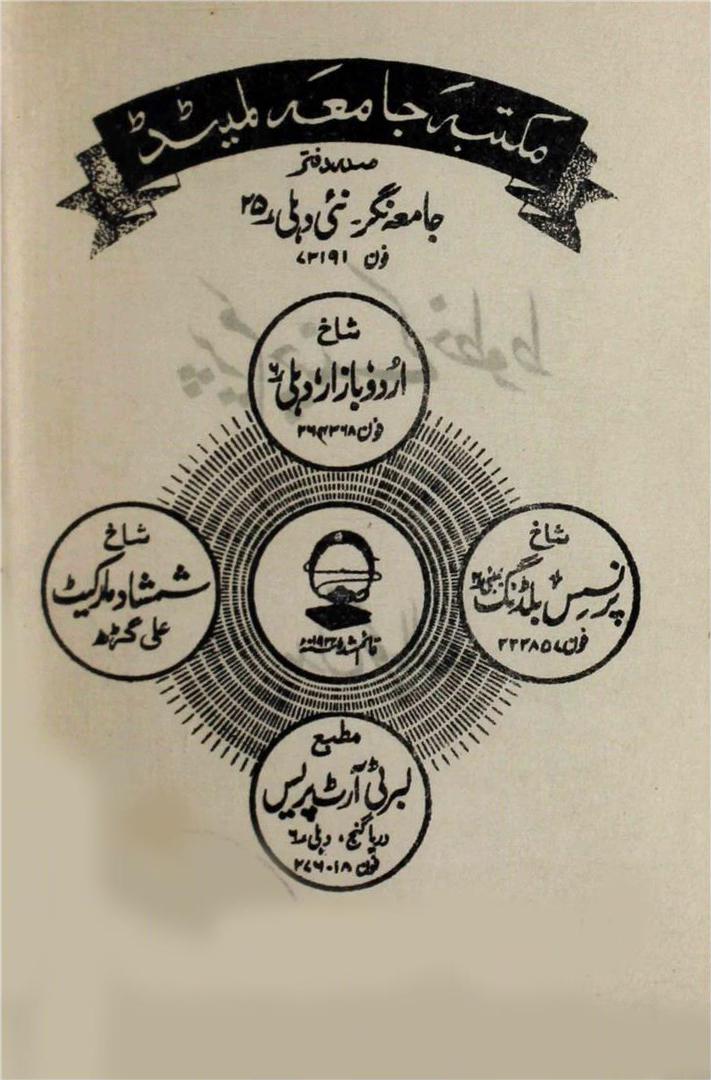 مکتبہ جامعہ لمیٹڈ
صدر دفتر
جامعہ نگر۔ نئی دہلی ۲۵
فون ۷۳۱۹۱
شاخ
اُردو بازار، دہلی ۶
فون
شاخ
پرنسس بلڈنگ بمبئی
فون ۲۳۲۸۵۷
شاخ
شمشاد مارکیٹ
علی گڑھ
قائم شدہ
مطبع
لبرٹی آرٹ پریس
دریا گنج، دہلی ۶
فون ۲۷۶۰۱۸